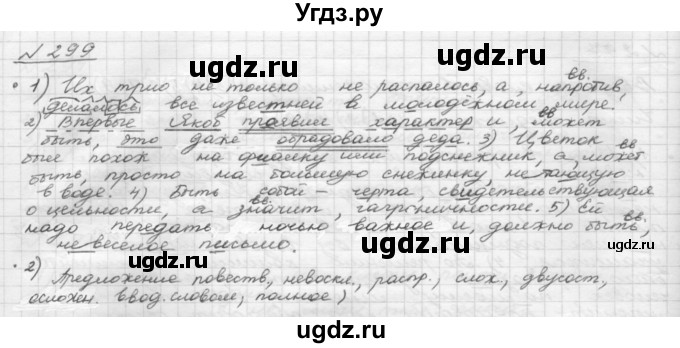 Угдз.ру
№ 299
1) Их трио не только не распалось, а, напротив, вв.
делалось всё известней в молодёжном мире.
2) Впервые Яков проявил характер и, может
быть, это даже обрадовало деда. 3) Цветок вв.
был похож на фиалку или подснежник, а, может
быть, просто на большую снежинку, не тающую
в воде. 4) Быть собой – черта, свидетельствующая
о цельности, а значит, гармоничности. 5) Ей вв.
надо передать ночью важное и, должно быть, вв.
невесёлое письмо.
2) Предложение повеств., невоскл., распр., слож., двусост.,
осложн. ввод. словом, полное)
ugdz.ru
ugdz.ru
ugdz.ru
ugdz.ru
ugdz.ru
ugdz.ru
ugdz.ru
ugdz.ru